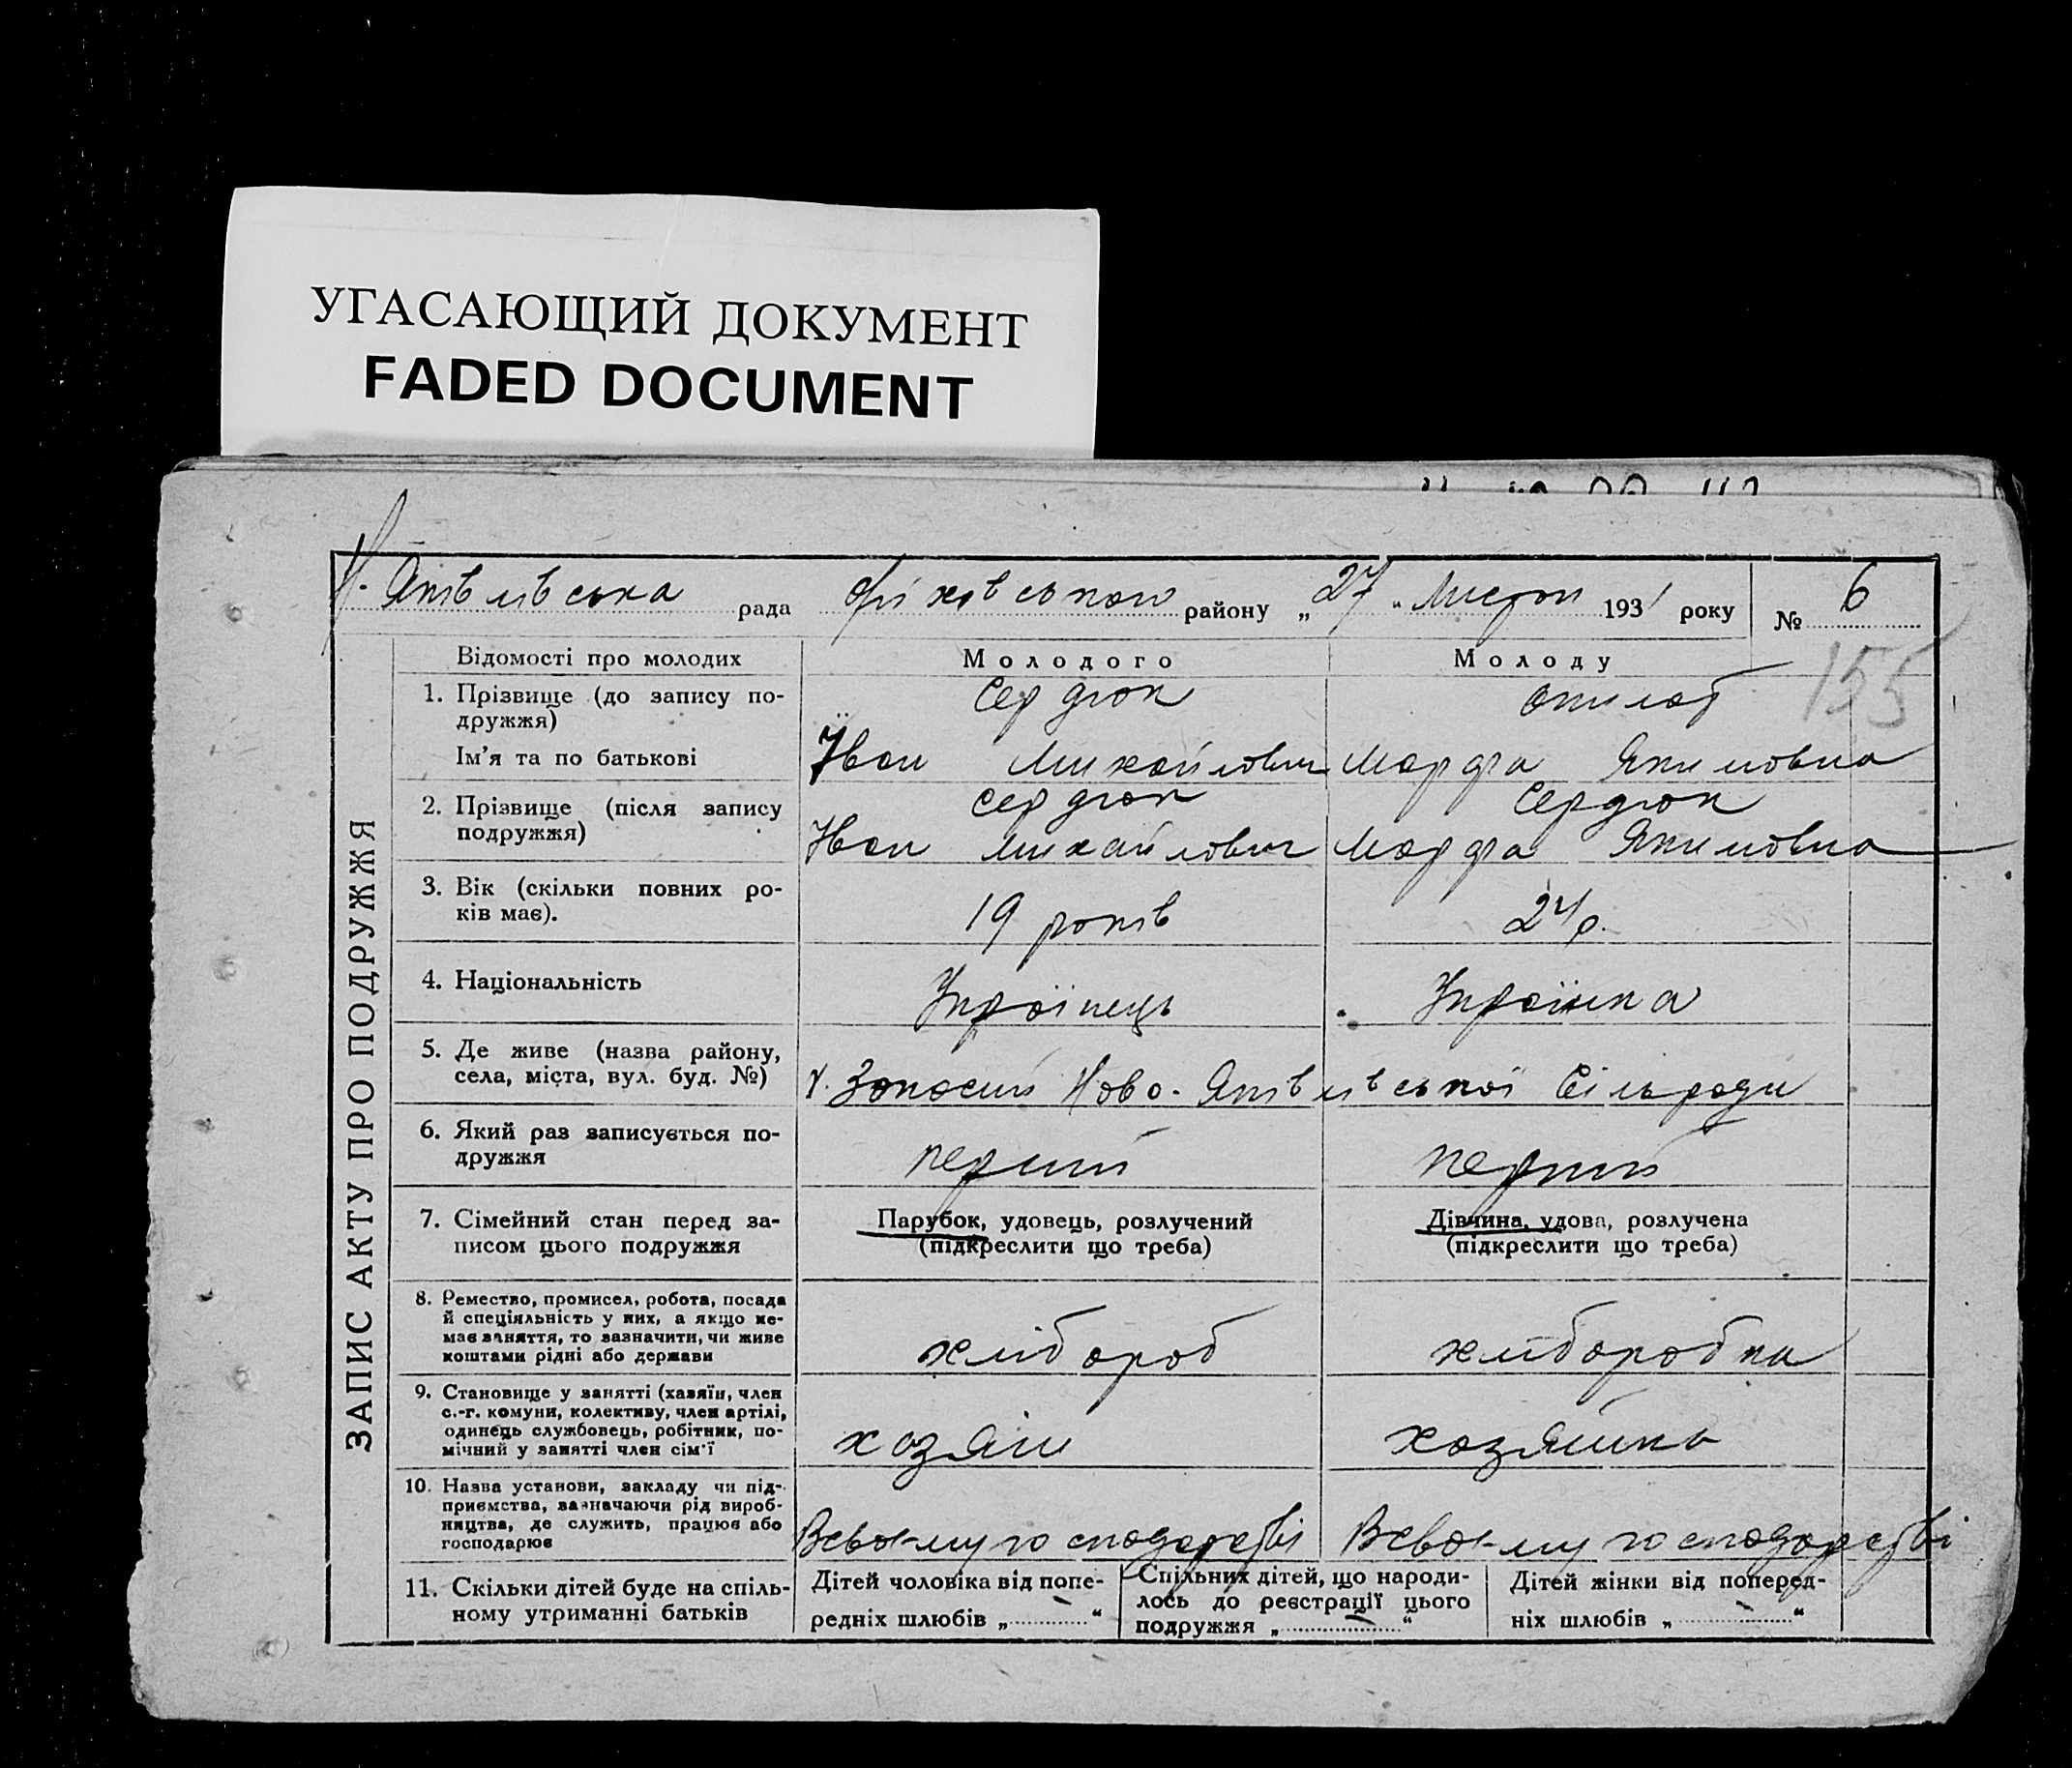 УГАСАЮЩИЙ ДОКУМЕНТ
FADED DOCUMENT
Н. Яківлівська рада Оріхівського району „27“ Листоп 1931 року № 6
155
ЗАПИС АКТУ ПРО ПОДРУЖЖЯ
Відомості про молодих Молодого Молоду
1. Прізвище (до запису по- Сердюк
дружжя)
Ім'я та по батькові Іван Михайлович Марфа Якимовна
2. Прізвище (після запису Сердюк Сердюк
подружжя) Іван Михайлович Марфа Якимовна
3. Вік (скільки повних ро- 19 років 24 р.
ків має).
4. Національність Українець Українка
5. Де живе (назва району,
села, міста, вул. буд. №) Ново-Яківлівської Сільради
6. Який раз записується по- перший перший
дружжя
7. Сімейний стан перед за- Парубок, удовець, розлучений Дівчина, удова, розлучена
писом цього подружжя (підкреслити що треба) (підкреслити що треба)
8. Ремество, промисел, робота, посада
й спеціяльність у них, а якщо не-
має заняття, то зазначити, чи живе хлібороб хлібороб ка
коштами рідні або держави
9. Становище у занятті (хазяїн, член
с.-г. комуни, колективу, член артілі,
одинець службовець, робітник, по- хозяін хозяйка
мічний у занятті член сім'ї
10. Назва установи, закладу чи під-
приємства, зазначаючи рід вироб-
ництва, де служить, працює або Всвойму господарстві Всвойму господарстві
господарює
11. Скільки дітей буде на спіль- Дітей чоловіка від попе- Спільних дітей, що народи- Дітей жінки від поперед-
ному утриманні батьків редніх шлюбів „ - “ лось до реєстрації цього ніх шлюбів „ - “
подружжя „ - “